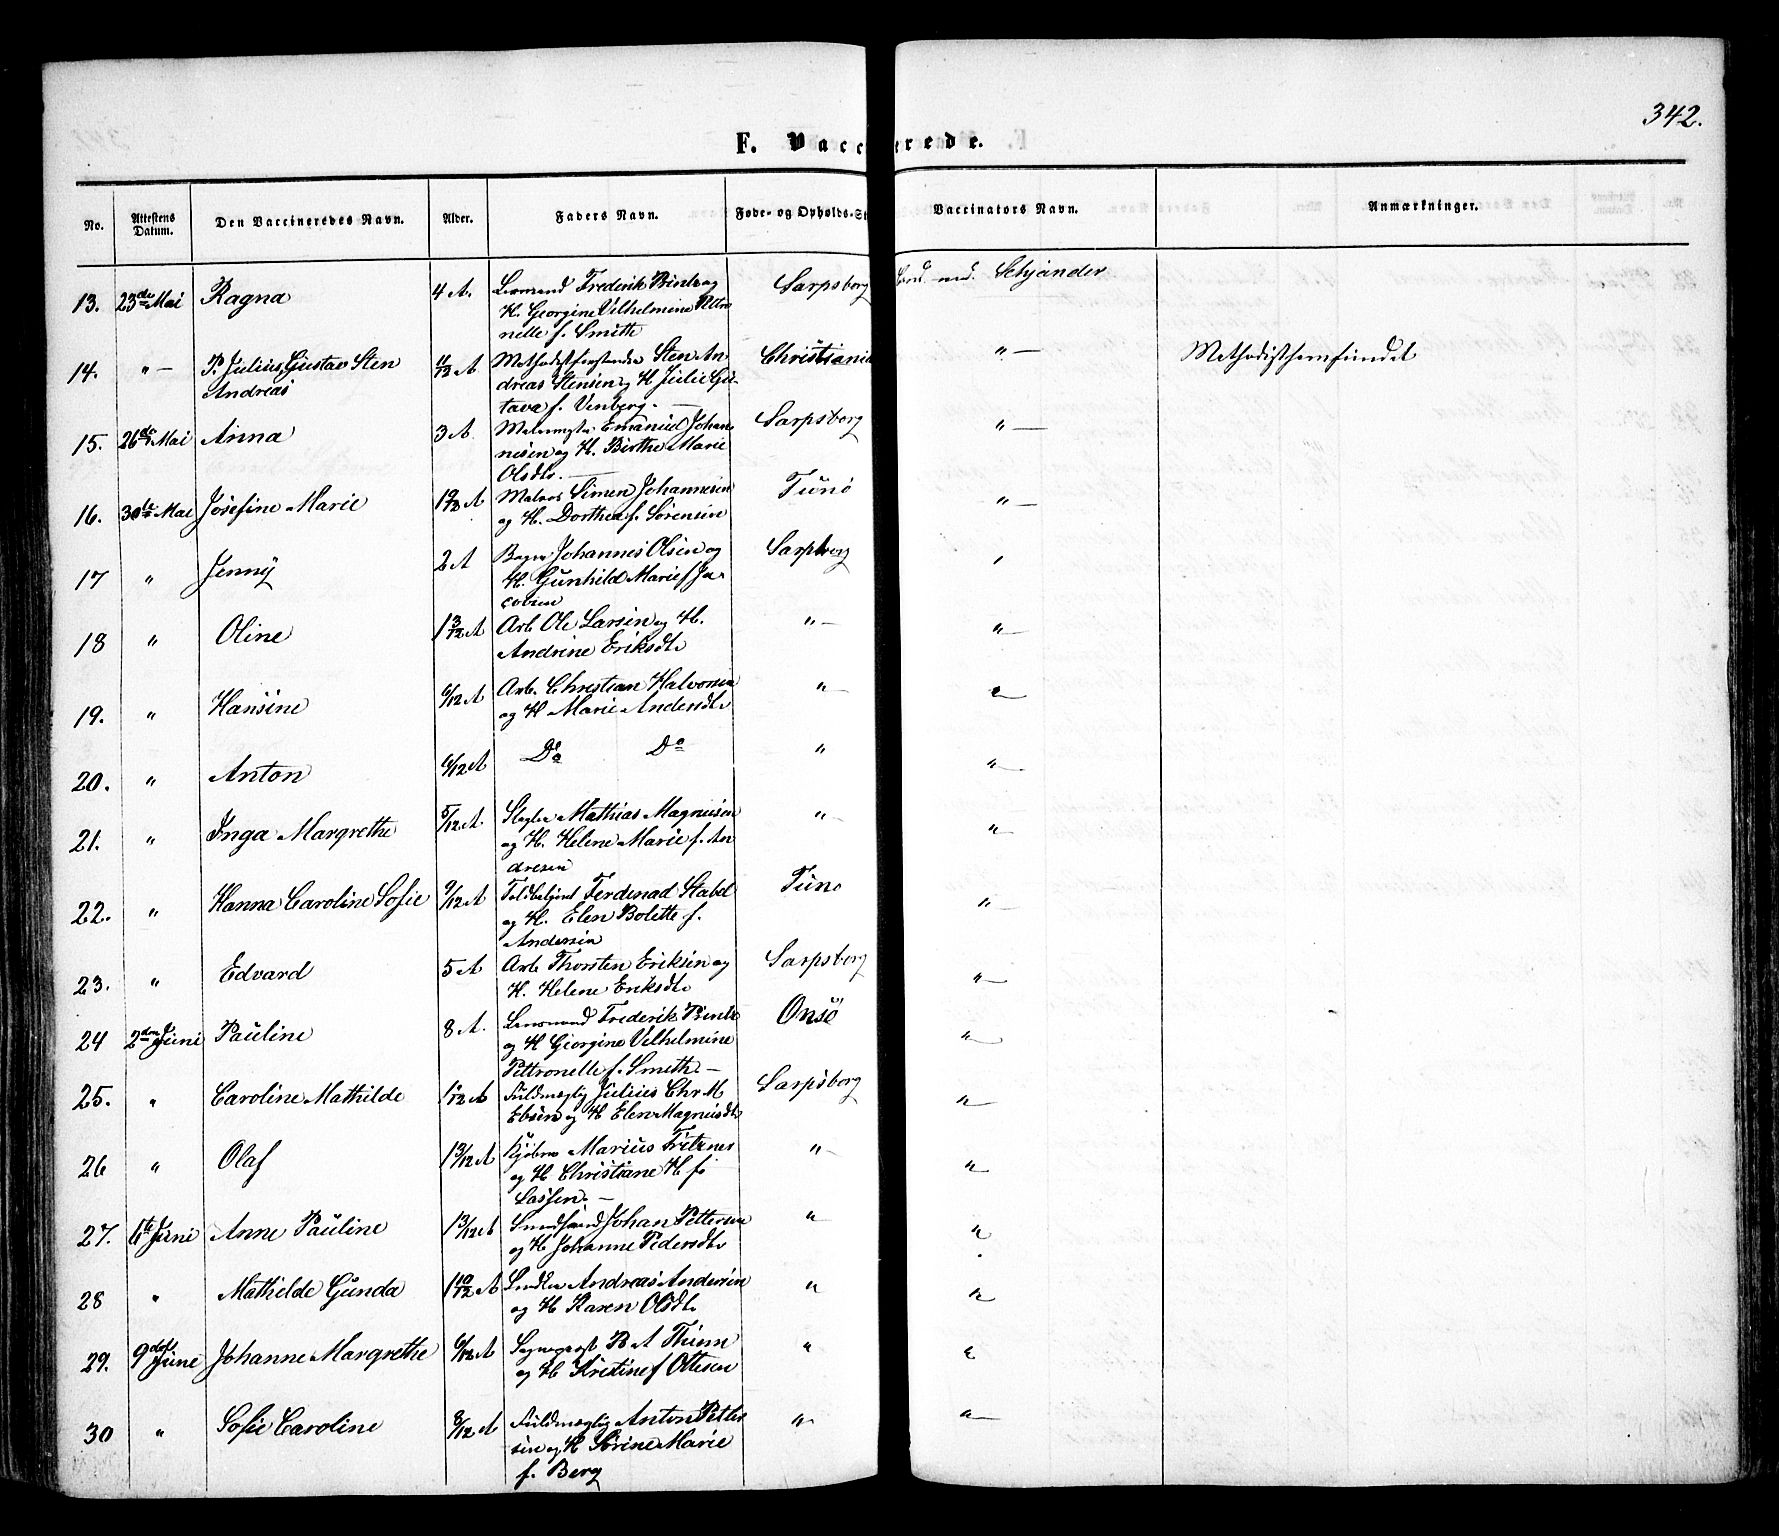 342.
F. Vaccinerede.
No. Attestens Datum. Den Vaccineredes Navn. Alder. Faders Navn. Føde- og Opholds-St Vaccinators Navn. Anmærkninger.
13. 23de Mai Ragna 4 A. Frederik og Sarpsborg Cand. med. Schjander
H. Georgine Vilhelmine Petro
nelle f. Smith
14. " — P. Julius Gustav Sten 11/12 A Methodistforstander Sten An Christiania " — Methodistsamfundet
Andreas dreas Stensen og H Julie Gu-
stava f. Venberg. —
15. 26de Mai Anna 3 A. Emanuel Johan Sarpsborg " —
nesen og H. Birthe Marie
Olsdtr. —
16. 30de Mai Josefine Marie 1 9/12 A Simen Johannesen Tunø " —
og H. Dorthea f. Sørensen
17 " Jenny 2 A Bager Johannes Olsen og Sarpborg "
H. Gunhild Marie f Ja-
cobsen
18 " Oline 1 3/12 A Arb Ole Larsen og H. " — " —
Andrine Eriksdtr
19. " Hansine 6/12 A Arb. Christian Halvorsen " — " —
og H Marie Andersdtr
20. " Anton 6/12 A Do Do " " —
21. " Inga Margrethe 5/12 A. Mathias Magnusen " — " —
og H. Helene Marie f. An
dresen
22. " Hanna Caroline Sofie 9/12 A Toldbetjent Ferdinad Stabel Tuno " —
og H. Elen Bolette f.
Andersen
23. " Edvard 5 A Arb Thorsten Eriksen og Sarpsborg " —
H. Helene Eriksdtr
24 2den Juni Pauline 8 A. Frederik Onsö " —
og H Georgine Vilhelmine
Pettronelle f. Smith. —
25. " Caroline Mathilde Fuldmægtig Julius Chr M Sarpsborg " —
Ebsen og H Elen Magnusdtr
26 " Olaf 1 3/12 A Kjøbm Marius " — " —
og H Christiane H f
Lassen. —
27. 6te Juni Anne Pauline 1 3/12 A Johan Pettersen " "
og H Johanne Pedersdtr
28 " Mathilde Gunda 1 10/12 A Snedker Andreas Andersen " " —
og H Karen Olsdtr
29. 9de Juni Johanne Margrethe 6/12 A Sogneprest B A Thurm " "
og H Kristine f Ottesen
30 " Sofie Caroline 8/12 A Fuldmægtig Anton Petter " — " —
sen og H Sörine Marie
f. Berg